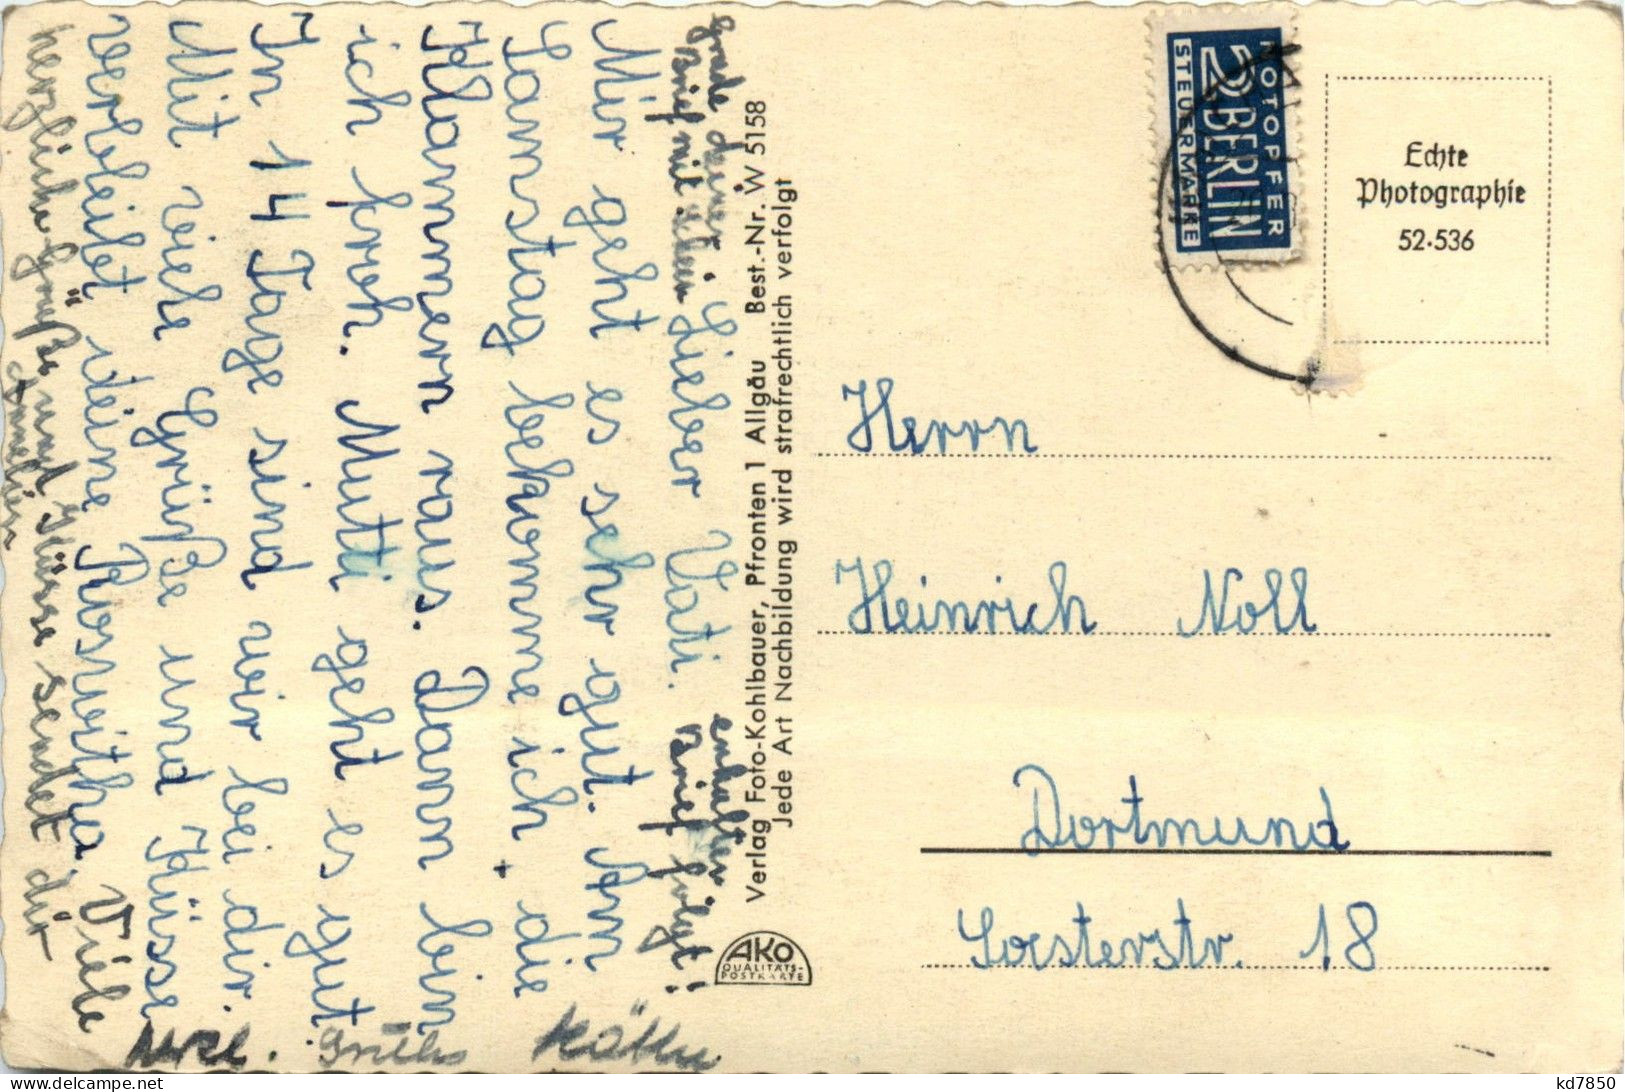 Lieber Vati.
Mir geht es sehr gut. Am
Samstag bekomme ich, die
Klammern raus. Dann bin
ich froh. Mutti geht es gut
In 14 Tage sind wir bei dir.
Mit viele Grüße und Küsse
verbleibt deine Roswitha. Viele
herzliche Grüße und Küsse sendet dir
Annelien
Grade deinen
Brief mit
erhalten
Brief folgt!
herzl. Grüße Käthe
Verlag Foto-Kohlbauer, Pfronten 1 Allgäu Best.-Nr. W 5158
Jede Art Nachbildung wird strafrechtlich verfolgt
AKO
QUALITÄTS-
POSTKARTE
NOTOPFER
2 BERLIN
STEUERMARKE
Echte
Photographie
52·536
Herrn
Heinrich Noll
Dortmund
Soesterstr. 18
delcampe.net
kd7850